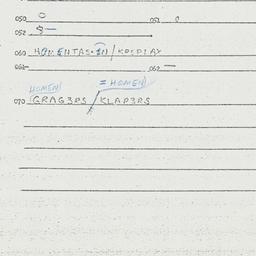 050 O 051 O
052 $ —
060 HOMENTAS·IN/KOSPLAY
061- 062 —
HOMEN = HOMEN
070 GRAG3RS / KLAP3RS